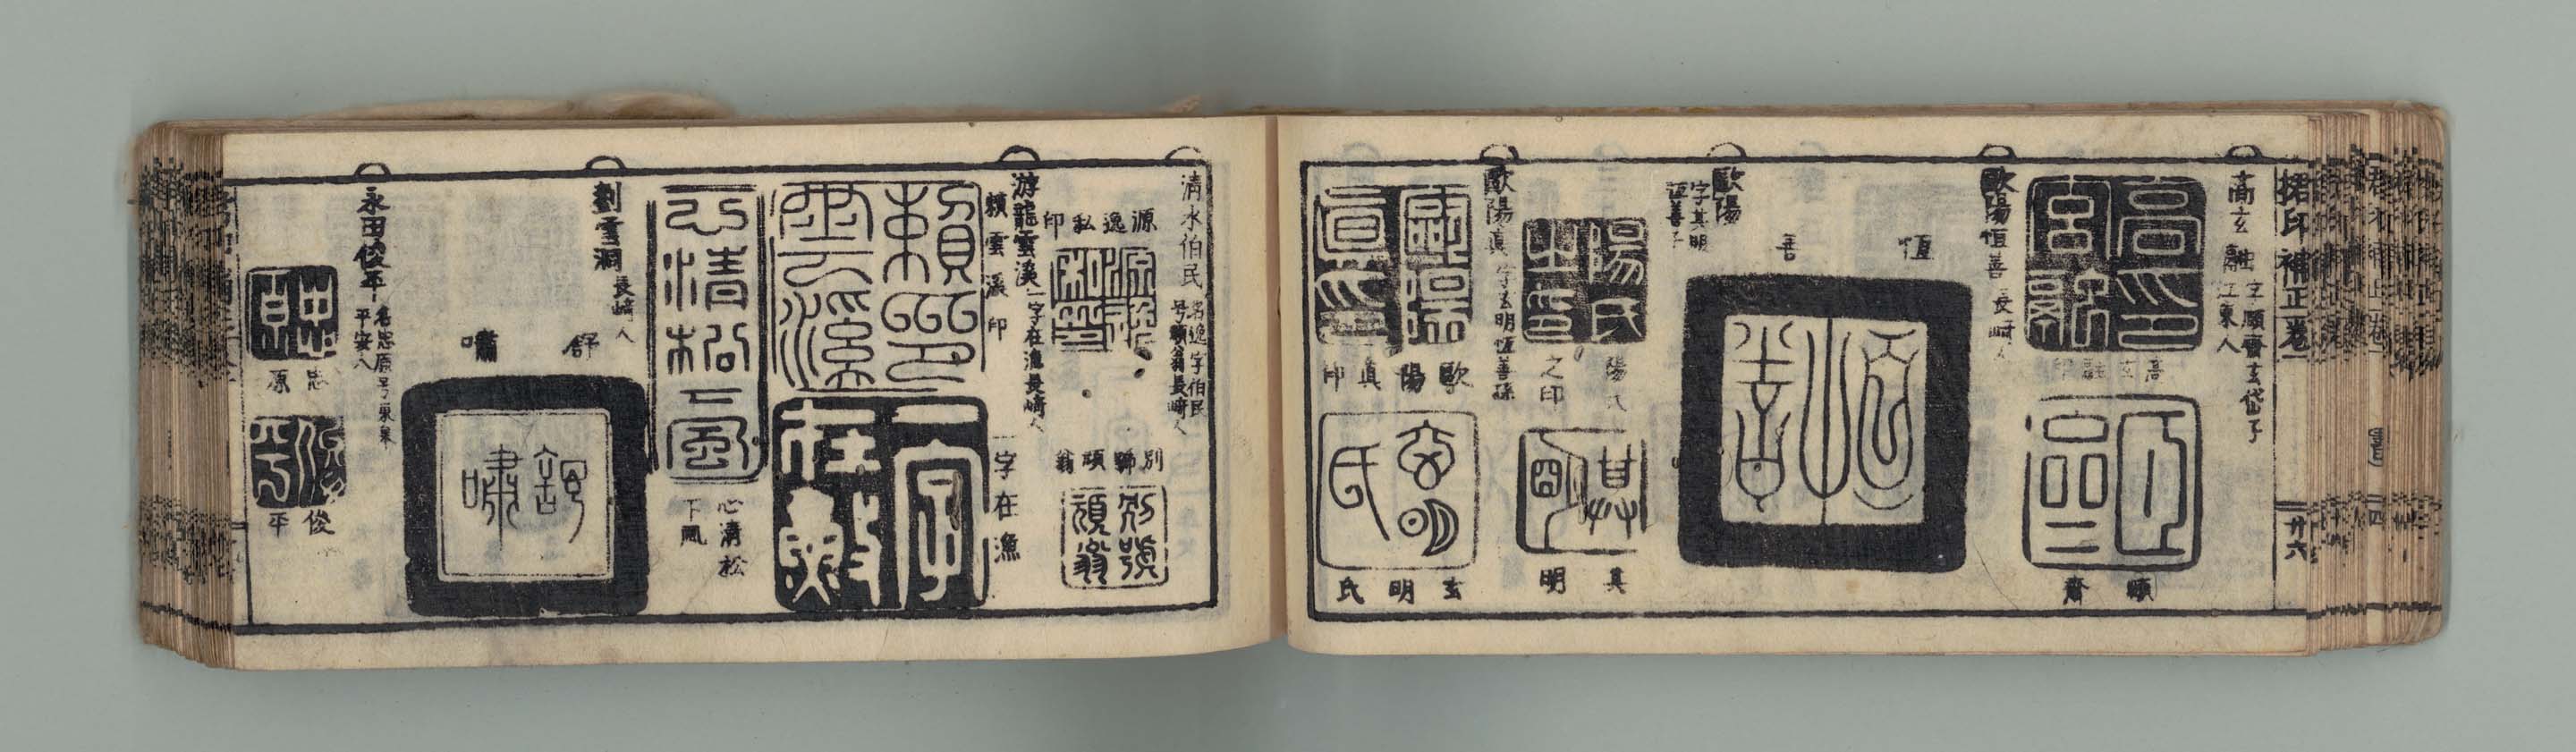 捃印補正卷一
廿六
高玄
字順齋玄岱子
江東人
高玄融印
順齋
歐陽恒善
長崎人
恒善
歐陽
字其明
恒善子
陽氏之印
其明
歐陽真
字玄明恒善孫
歐陽真印
玄明氏
清水伯民
名逸字伯民
号頑翁長崎人
源逸私印
別號頑翁
游龍雲溪
一字在漁長崎人
賴雲溪印
一字在漁
心清松下風
劉雲洞
長崎人
舒嘯
永田俊平
名忠原号東皋
平安人
忠原
俊平